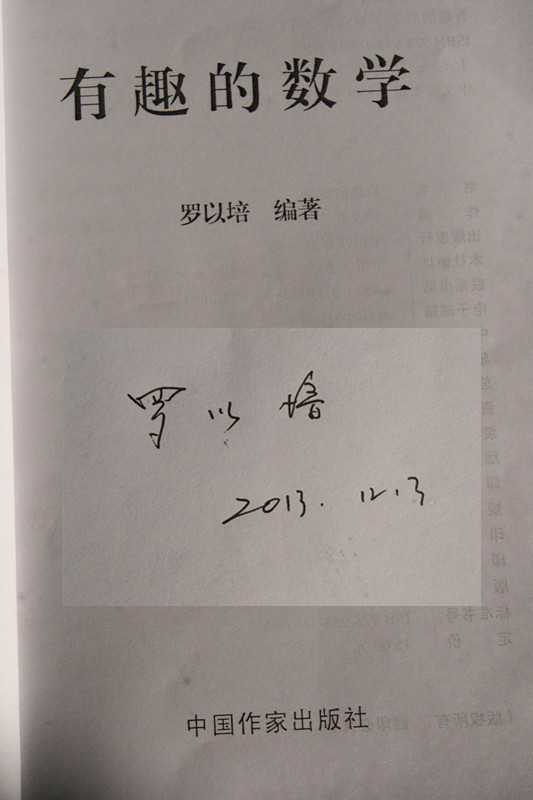 有趣的数学
罗以培 编著
罗以培
2013.12.13
中国作家出版社